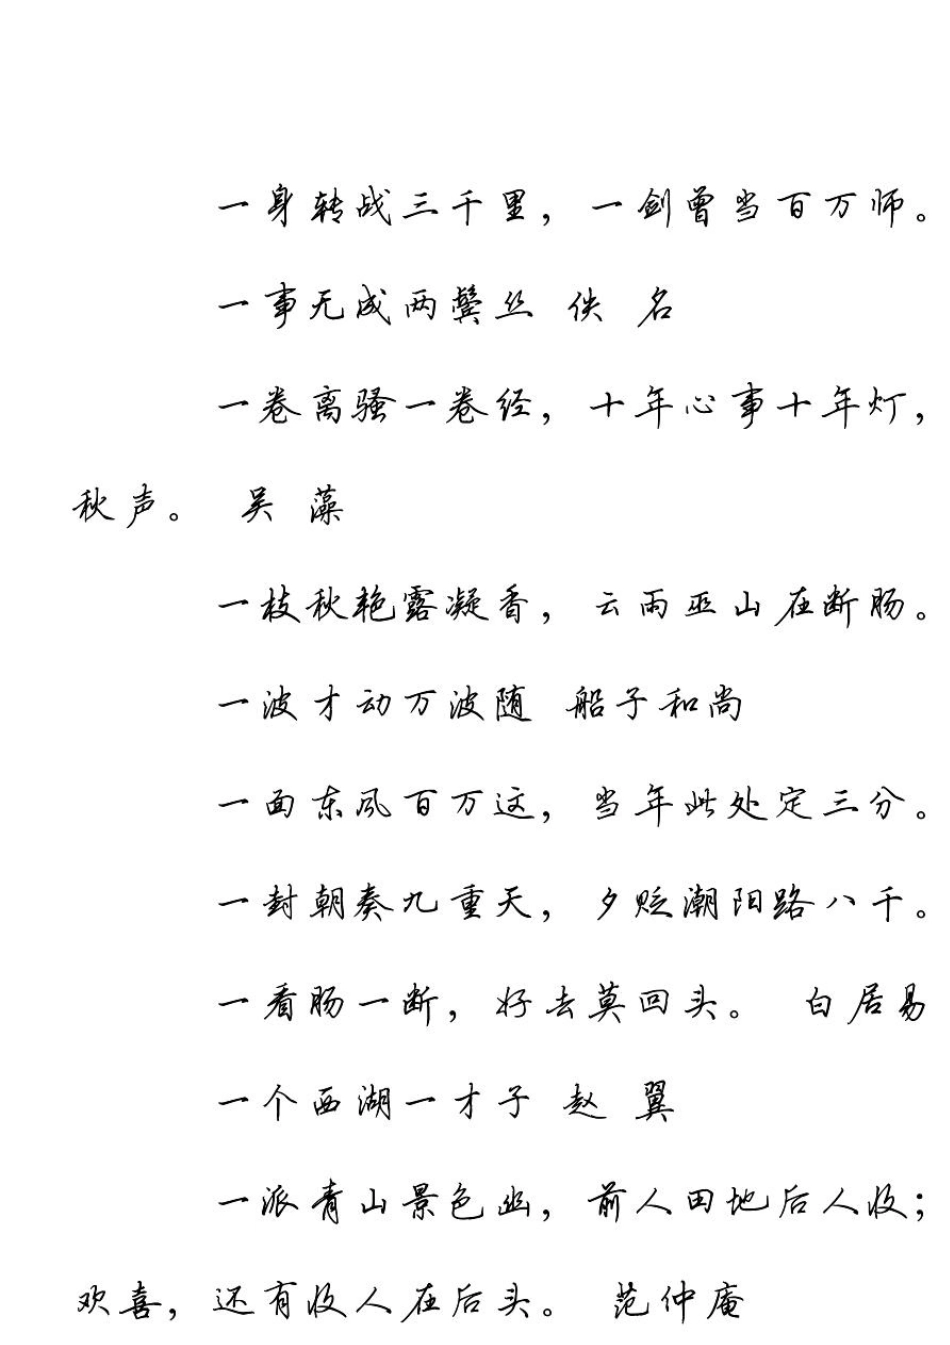 一身转战三千里，一剑曾当百万师。
一事无成两鬓丝 佚 名
一卷离骚一卷经，十年心事十年灯，
秋声。 吴 藻
一枝秋艳露凝香，云雨巫山在断肠。
一波才动万波随 船子和尚
一面东风百万这，当年此处定三分。
一封朝奏九重天，夕贬潮阳路八千。
一看肠一断，好去莫回头。 白居易
一个西湖一才子 赵 翼
一派青山景色幽，前人田地后人收；
欢喜，还有收人在后头。 范仲庵